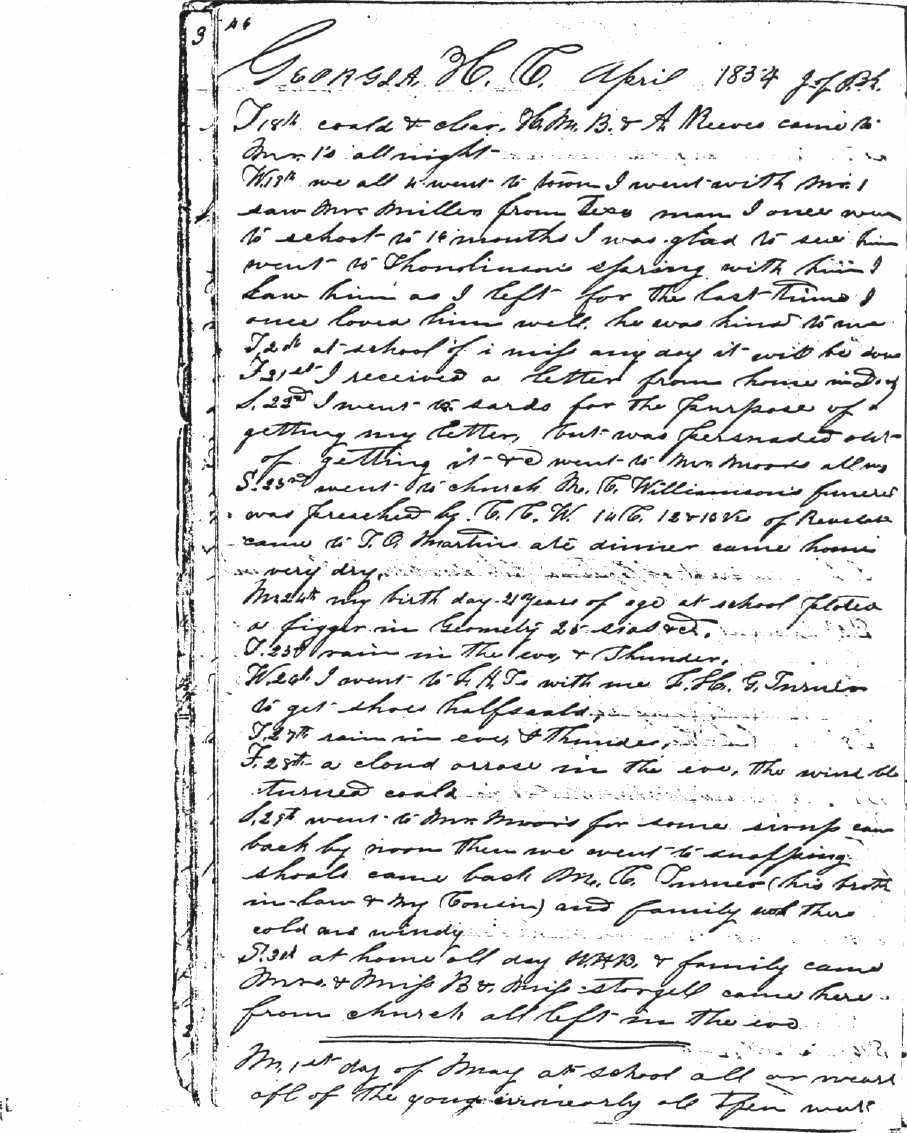 3 46
GEORGIA. H. C. April 1854 J. of P. h.
T 18th coald & clear. H. M. B. & A Reeves came to
Mr. 1's all night
W. 19th we all 4 went to town I went with Mr. 1
saw Mr. Miller from man I once went
to school to 14 months I was glad to see him
went to Thomlinson's spring with him I
saw him as I left for the last time I
once loved him well. he was kind to me
T 20th at school if i miss any day it will be
F. 21st I received a letter from home in
S. 22nd I went to sards for the purpose of
getting my letter, but was persuaded out
of getting it &c went to Mr. Moores all
S. 23rd went to church M. C. Williamson's funeral
was preached by C. C. W. 14 C. 12 & 13 Vs of
came to T. O. Martins ate dinner came home
very dry.
M. 24th my birth day 21 years of age at school ploted
a figger in Geomety 25 &c.
T. 25th rain in the eve, & Thunder,
W. 26th I went to with me F. H. G. Turner
to get shoes halfsoald,
T. 27th rain in eve, & thunder,
F. 28th a cloud arose in the eve, the wind
turned coald
S. 29th went to Mr. Moors for some sirup
back by noon then we went to snapping
shoals came back M. C. Turner (his broth
in-law & My Cousin) and family there
cold and windy
S. 30th at home all day & family came
Mrs. & Miss B & Miss came here
from church all left in the eve
M. 1st day of May at school all or
all of the young all